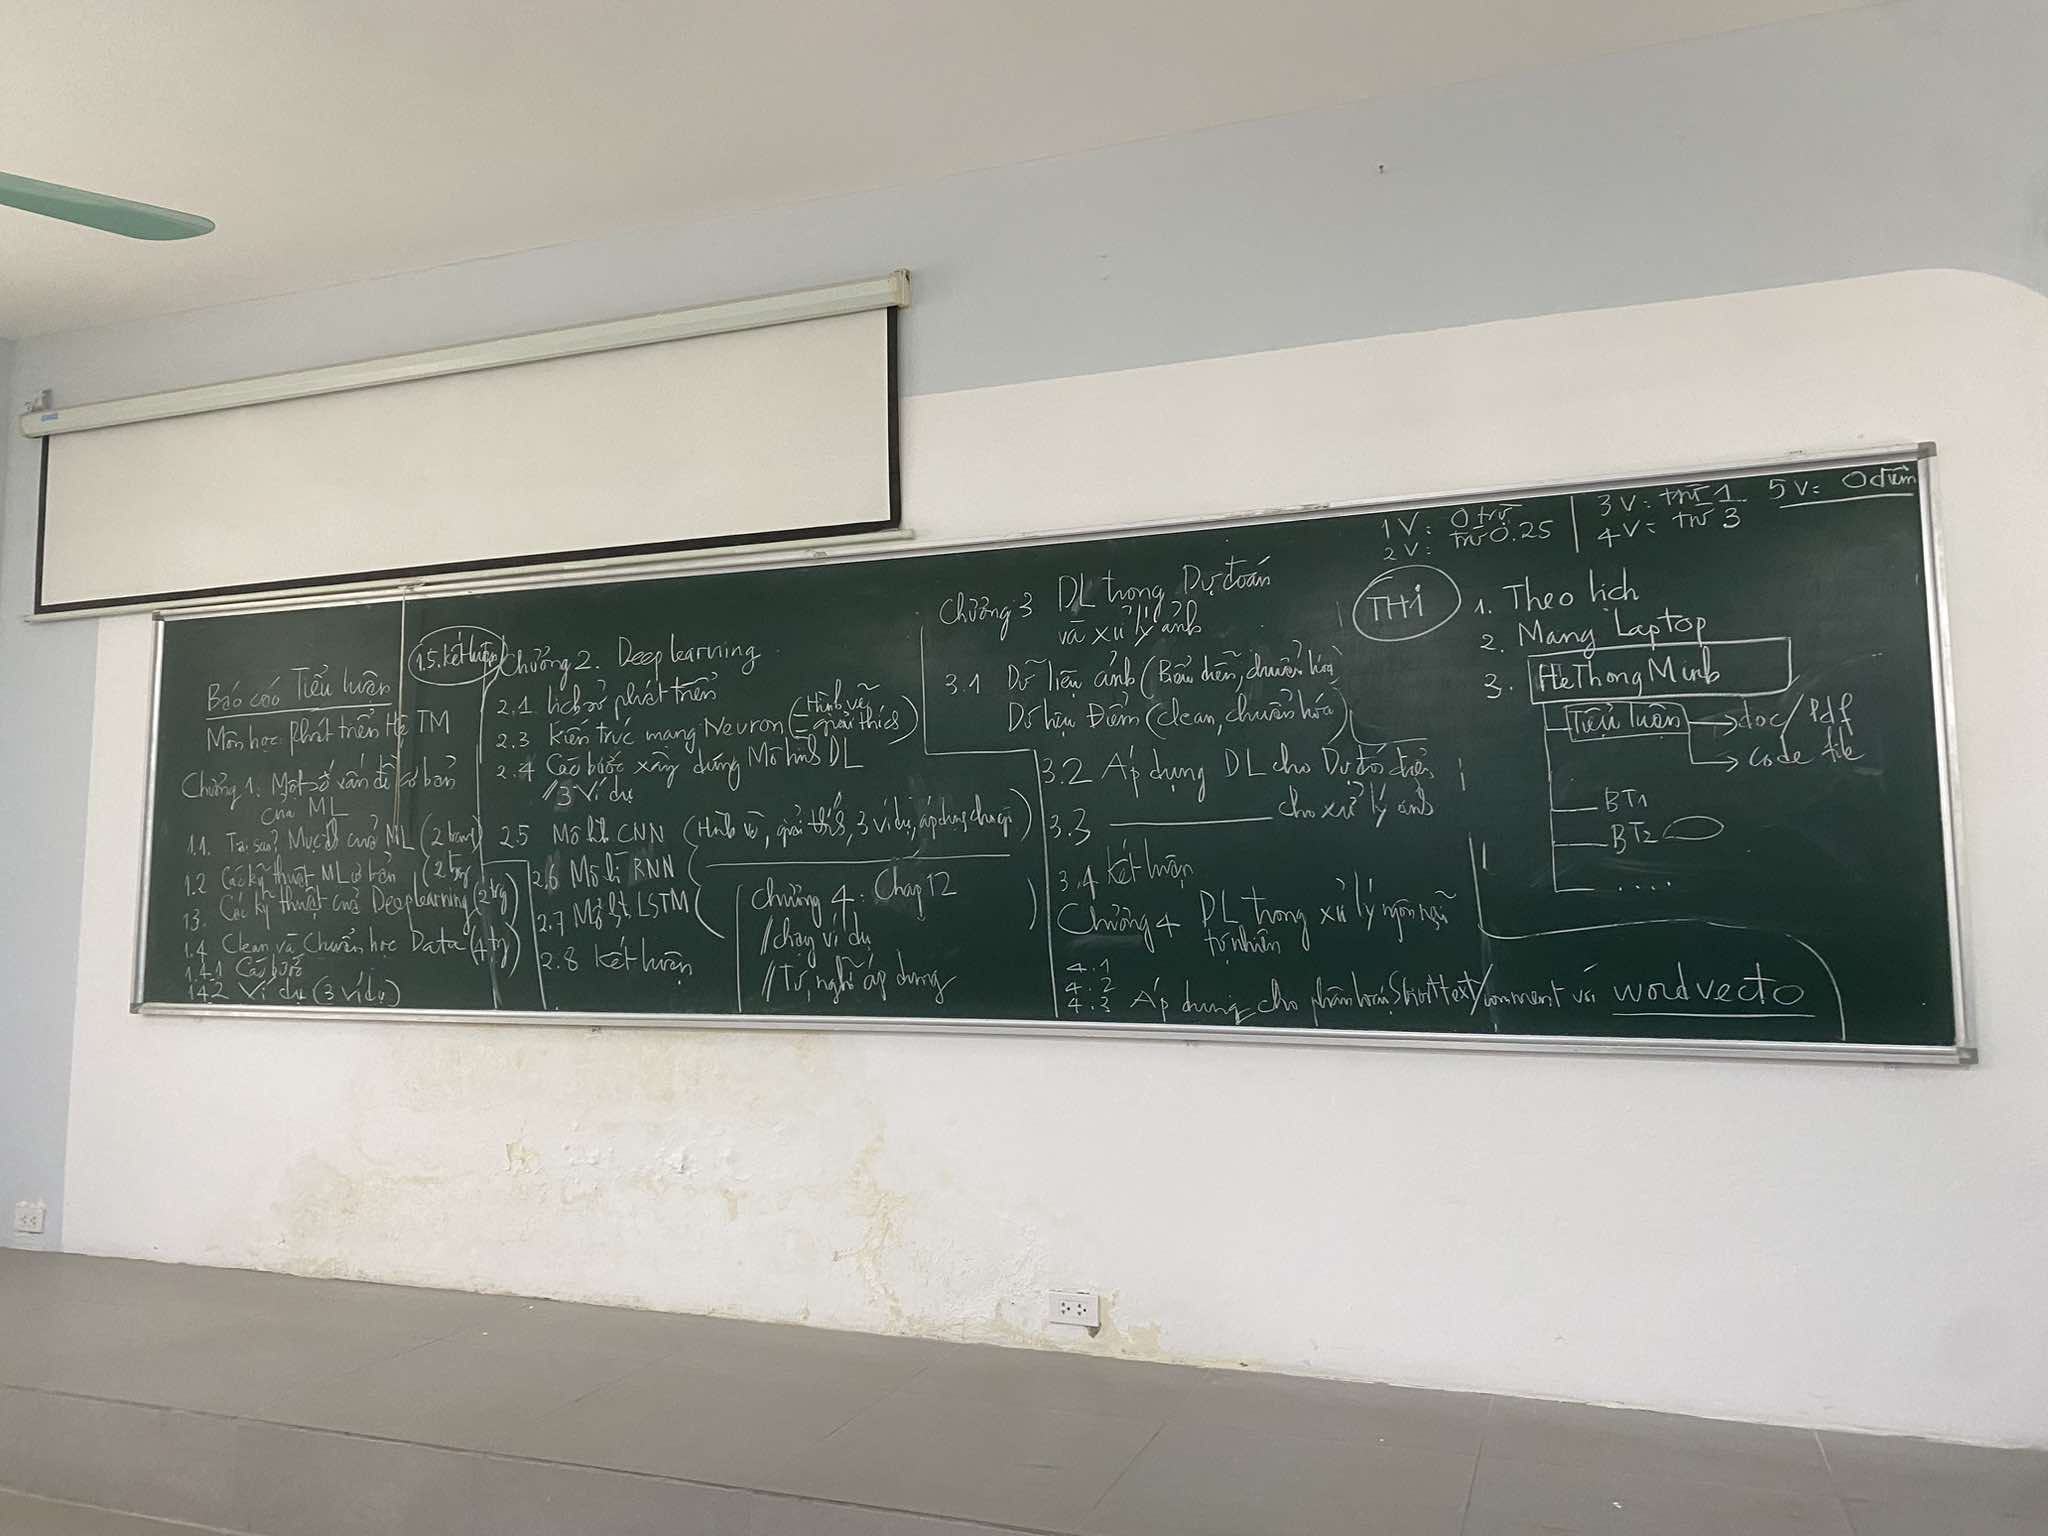 Báo cáo Tiểu luận
Môn học: Phát triển Hệ TM
Chương 1: Một số vấn đề cơ bản
của ML
1.1. Tại sao? Mục đích của ML (2 trang)
1.2 Các kỹ thuật ML cơ bản (2 trg)
1.3. Các kỹ thuật của Deep learning (2 trg)
1.4 Clean và Chuẩn học Data (4 trg)
1.4.1 Các bước
1.4.2 Ví dụ (3 ví dụ)
1.5. Kết luận
Chương 2. Deep learning
2.1 Lịch sử phát triển
2.3 Kiến trúc mạng Neuron (- Hình vẽ
- giải thích)
2.4 Các bước xây dựng Mô hình DL
// 3 Ví dụ
2.5 Mô hình CNN (Hình vẽ, giải thích, 3 ví dụ, áp dụng cho gì)
2.6 Mô hì RNN (
2.7 Mô hì LSTM ( )
2.8 Kết luận
Chương 4: Chap 12
// chạy ví dụ
// Tự nghĩ áp dụng
Chương 3 DL trong Dự đoán
và xử lý ảnh
3.1 Dữ liệu ảnh (Biểu diễn, chuẩn hóa)
Dữ liệu Điểm (clean, chuẩn hóa)
3.2 Áp dụng DL cho Dự đoán điểm
3.3 cho xử lý ảnh
3.4 Kết luận
Chương 4 DL trong xử lý ngôn ngữ
tự nhiên
4.1
4.2
4.3 Áp dụng cho phân loại Short text/comment với wordvecto
1V: 0 trừ
2V: trừ 0.25
3V: trừ 1
4V: trừ 3
5V: 0 điểm
TH1
1. Theo lịch
2. Mang Laptop
3. HeThongMinh
Tiểu luận → doc/Pdf
→ Code file
BT1
BT2
....